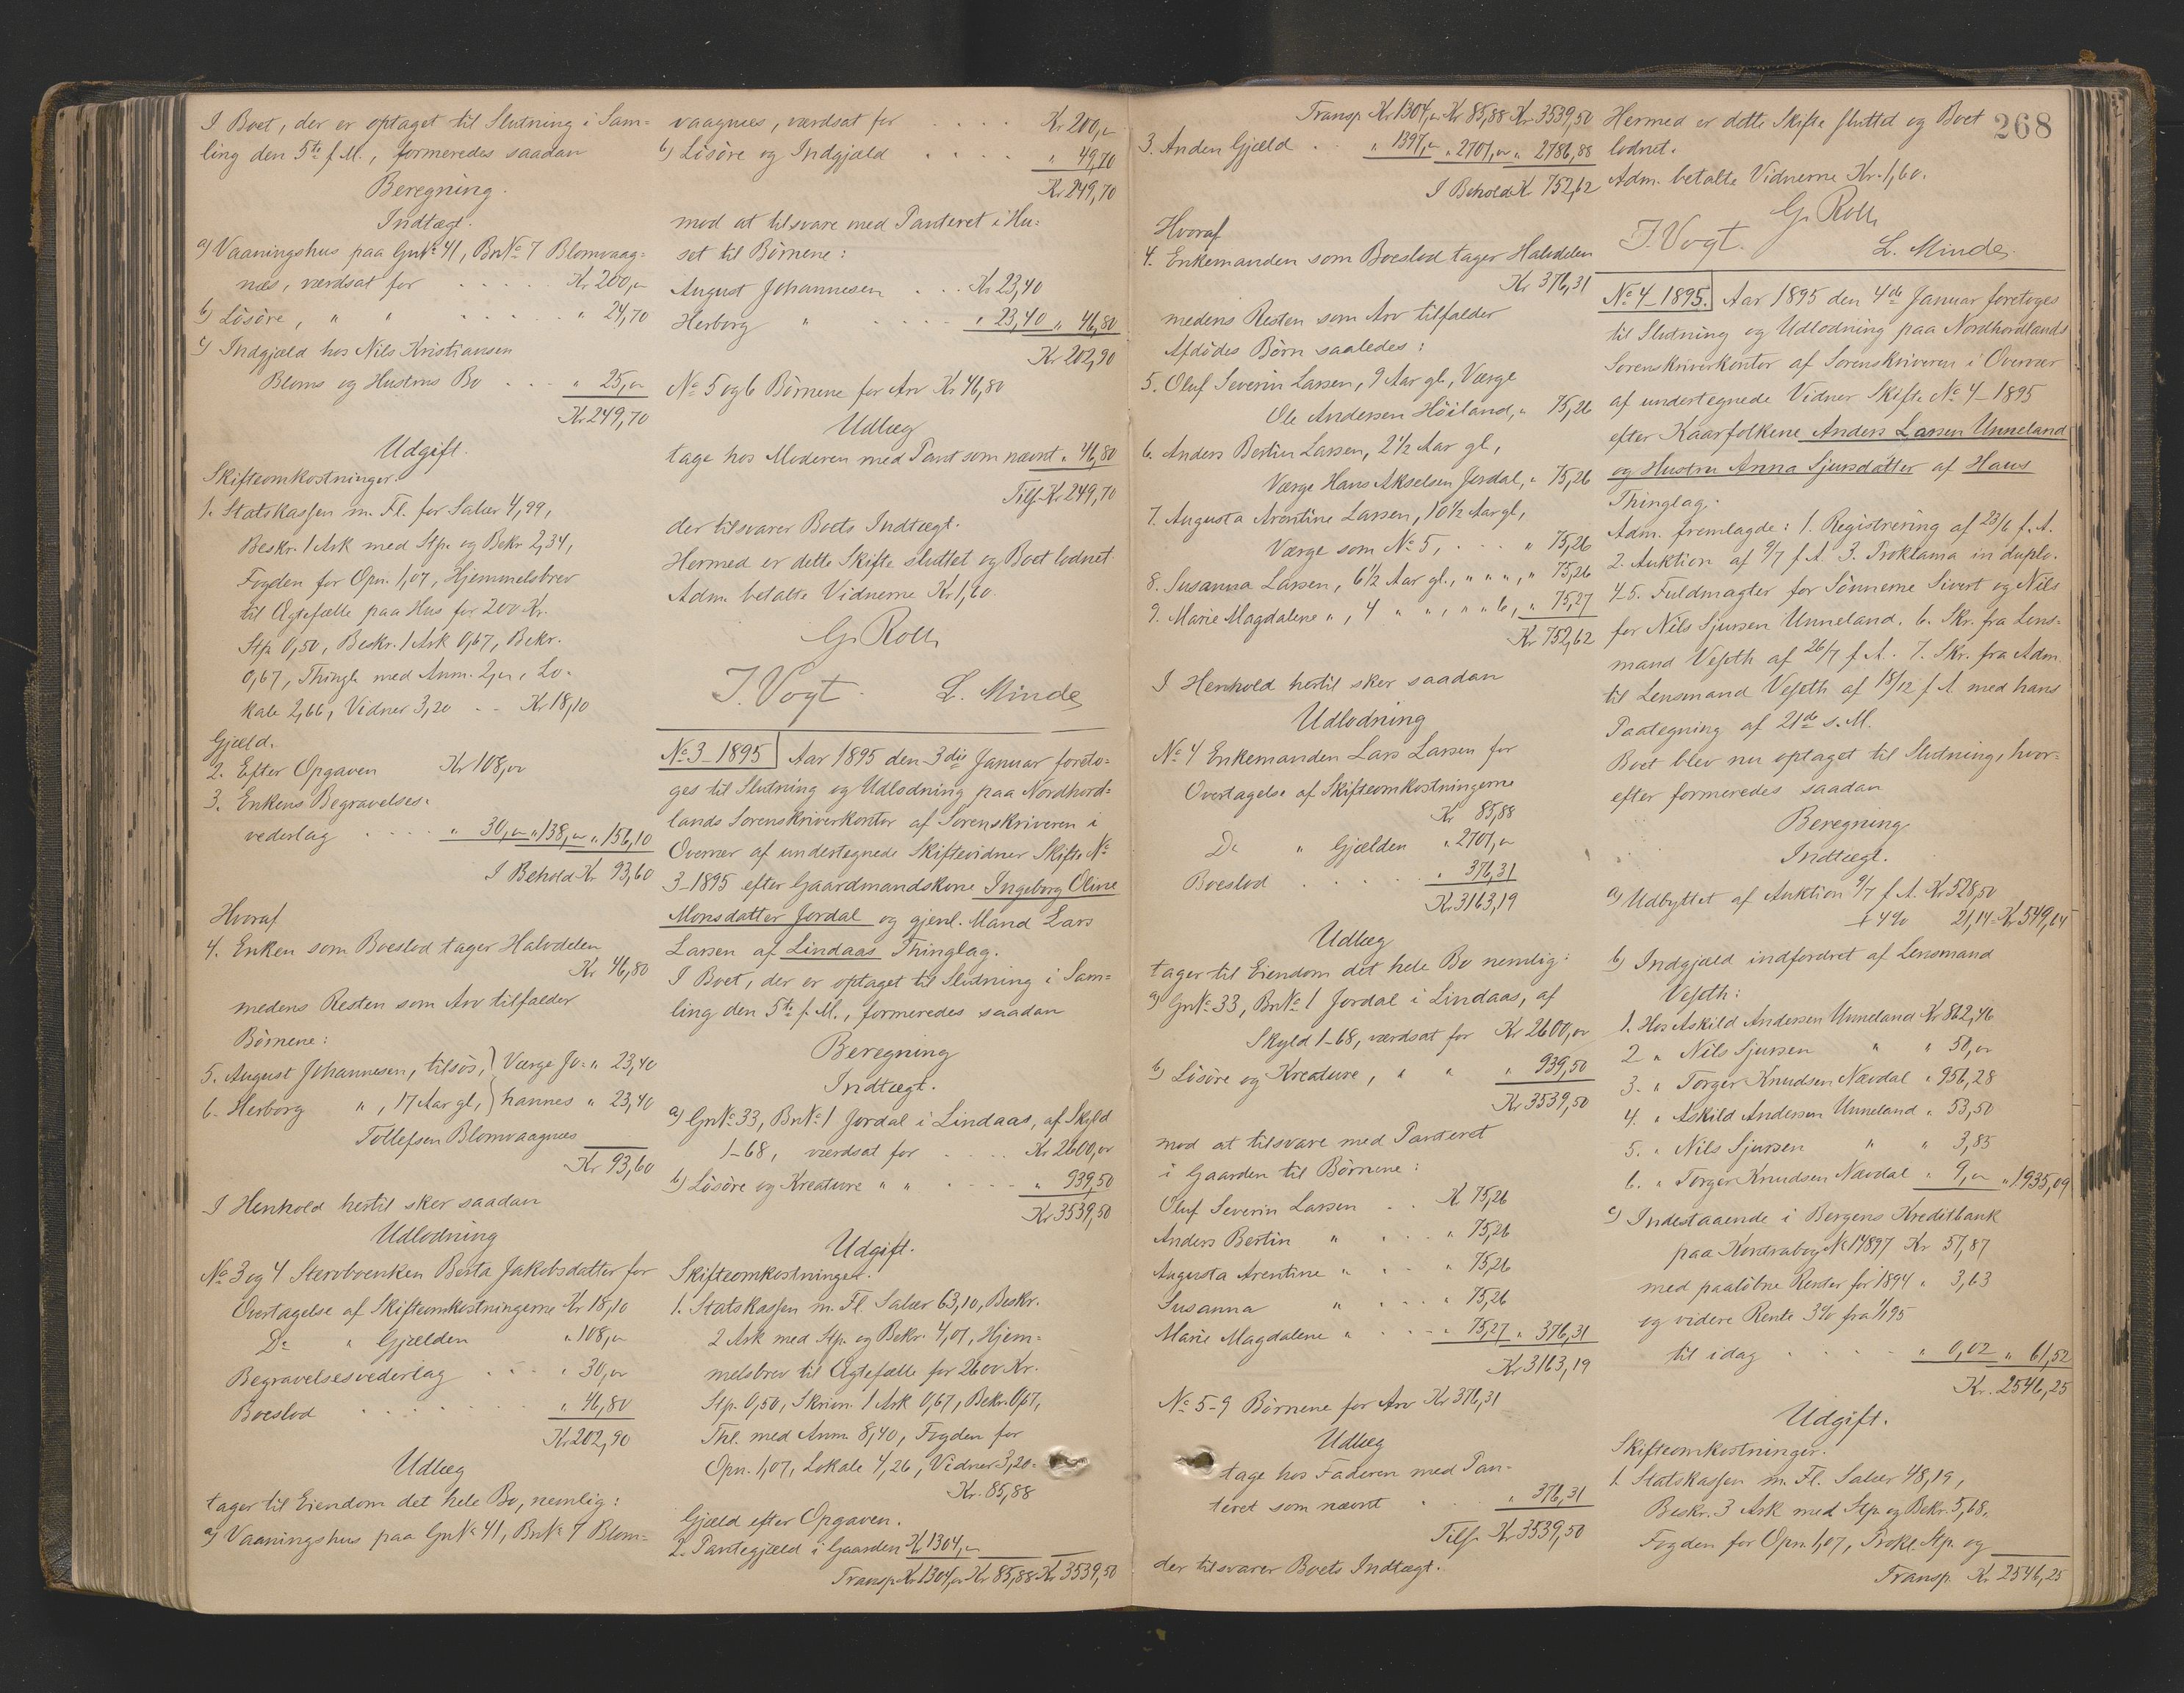 I Boet, der er optaget til Slutning i Sam=
ling den 5te f. M., formeredes saadan
Beregning.
Indtægt.
a) Vaaningshus paa GnNo 41, BnNo 7 Blomvaag=
næs, værdsat for . . . . . Kr 200,00
b) Løsøre, " " . . . . . " 24,70
c) Indgjæld hos Nils Kristiansen
Bloms og Hustrus Bo . . . " 25,00
Kr 249,70
Udgift.
Skifteomkostninger.
1. Statskassen m. Fl. for Salær 4,99,
Beskr. 1 Ark med Stp. og Bekr 2,34,
Fogden for Opn. 1,07, Hjemmelsbrev
til Ægtefælle paa Hus for 200 Kr.
Stp. 0,50, Beskr. 1 Ark 0,67, Bekr.
0,67, Thingl. med Anm. 2,00, Lo-
kale 2,66, Vidner 3,20 . . Kr 18,10
Gjæld.
2. Efter Opgaven Kr 108,00
3. Enkens Begravelses-
vederlag . . . . " 30,00 " 138,00 " 156,10
I Behold Kr 93,60
Hvoraf
4. Enken som Boeslod tager Halvdelen
Kr 46,80
medens Resten som Arv tilfalder
Børnene:
5. August Johannesen, tilsøs, } Værge Jo- " 23,40
6. Herborg " , 17 Aar gl, } hannes " 23,40
Tollefsen Blomvaagnæs
Kr 93,60
I Henhold hertil sker saadan
Udlodning
No 3 og 4 Stervboenken Berta Jakobsdatter for
Overtagelse af Skifteomkostningerne Kr 18,10
Do " Gjælden " 108,00
Begravelsesvederlag . . . " 30,00
Boeslod . . . . . . . " 46,80
Kr 202,90
Udlæg
tager til Eiendom det hele Bo, nemlig:
a) Vaaningshus paa GnNo 41, BnNo 7 Blom=
vaagnæs, værdsat for . . . . Kr 200,00
b) Løsøre og Indgjæld . . . . " 49,70
Kr 249,70
mod at tilsvare med Panteret i Hu=
set til Børnene:
August Johannesen . . . Kr 23,40
Herborg " . . . . " 23,40 " 46,80
Kr 202,90
No 5 og 6 Børnene for Arv Kr 46,80
Udlæg
tage hos Moderen med Pant som nævnt " 46,80
Tils. Kr 249,70
der tilsvarer Boets Indtægt.
Hermed er dette Skifte sluttet og Boet lodnet.
Adm. betalte Vidnerne Kr 1,60.
G. Roll
J. Vogt. L. Minde
No 3-1895 Aar 1895 den 3die Januar foreto=
ges til Slutning og Udlodning paa Nordhord=
lands Sorenskriverkontor af Sorenskriveren i
Overvær af undertegnede Skiftevidner Skifte No
3-1895 efter Gaardmandskone Ingeborg Oline
Monsdatter Jordal og gjenl. Mand Lars
Larsen af Lindaas Thinglag.
I Boet, der er optaget til Slutning i Sam=
ling den 5te f. M., formeredes saadan
Beregning
Indtægt.
a) GnNo 33, BnNo 1 Jordal i Lindaas, af Skyld
1-68, værdsat for . . . . Kr 2600,00
b) Løsøre og Kreature " " . . . . " 939,50
Kr 3539,50
Udgift.
Skifteomkostninger.
1. Statskassen m. Fl. Salær 63,10, Beskr.
2 Ark med Stp. og Bekr. 4,01, Hjem=
melsbrev til Ægtefælle for 2600 Kr.
Stp. 0,50, Skrivn. 1 Ark 0,67, Bekr. 0,67,
Thl. med Anm. 8,40, Fogden for
Opn. 1,07, Lokale 4,26, Vidner 3,20=
Kr. 85,88
Gjæld efter Opgaven.
2. Pantegjæld i Gaarden Kr 1304,00
Transp Kr 1304,00 Kr 85,88 Kr 3539,50
268
Transp Kr 1304,00 Kr 85,88 Kr 3539,50
3. Anden Gjæld . . " 1397,00 " 2701,00 " 2786,88
I Behold Kr 752,62
Hvoraf
4. Enkemanden som Boeslod tager Halvdelen
Kr 376,31
medens Resten som Arv tilfalder
Afdødes Børn saaledes:
5. Oluf Severin Larsen, 9 Aar gl., Værge
Ole Andersen Høiland, " 75,26
6. Anders Bertin Larsen, 2½ Aar gl,
Værge Hans Akselsen Jordal, " 75,26
7. Augusta Arentine Larsen, 10½ Aar gl,
Værge som No 5, . . . " 75,26
8. Susanna Larsen, 6½ Aar gl., " " " , " 75,26
9. Marie Magdalene " , 4 " " , " " 6, " 75,27
Kr 752,62
I Henhold hertil sker saadan
Udlodning
No 4 Enkemanden Lars Larsen for
Overtagelse af Skifteomkostningerne
Kr 85,88
Do " Gjælden " 2701,00
Boeslod . . . . . " 376,31
Kr 3163,19
Udlæg
tager til Eiendom det hele Bo nemlig:
a) GnNo 33, BnNo 1 Jordal i Lindaas, af
Skyld 1-68, værdsat for Kr 2600,00
b) Løsøre og Kreature, " " " 939,50
Kr 3539,50
mod at tilsvare med Panteret
i Gaarden til Børnene:
Oluf Severin Larsen . . Kr 75,26
Anders Bertin " . . . " 75,26
Augusta Arentine " . . " 75,26
Susanna " . . . " 75,26
Marie Magdalene " . . . " 75,27 " 376,31
Kr 3163,19
No 5-9 Børnene for Arv Kr 376,31
Udlæg
tage hos Faderen med Pan-
teret som nævnt . . " 376,31
Tils. Kr 3539,50
der tilsvarer Boets Indtægt.
Hermed er dette Skifte sluttet og Boet
lodnet.
Adm. betalte Vidnerne Kr. 1,60.
G. Roll
J. Vogt. L. Minde.
No 4-1895. Aar 1895 den 4de Januar foretoges
til Slutning og Udlodning paa Nordhordlands
Sorenskriverkontor af Sorenskriveren i Overvær
af undertegnede Vidner Skifte No 4-1895
efter Kaarfolkene Anders Larsen Unneland
og Hustru Anna Sjursdatter af Haus
Thinglag.
Adm. fremlagde: 1. Registrering af 23/6 f. A.
2. Auktion af 9/7 f. A. 3. Proklama in duplo.
4-5. Fuldmagter for Sønnerne Sivert og Nils
for Nils Sjursen Unneland. 6. Skr. fra Lens=
mand Veseth af 26/7 f. A. 7. Skr. fra Adm.
til Lensmand Veseth af 18/12 f. A. med hans
Paategning af 21de s. M.
Boet blev nu optaget til Slutning, hvor=
efter formeredes saadan
Beregning
Indtægt.
a) Udbyttet af Auktion 9/7 f. A. Kr 528,50
+ 4% 21,14 = Kr 549,64
b) Indgjæld indfordret af Lensmand
Veseth:
1. Hos Askild Andersen Unneland Kr 862,46
2 " Nils Sjursen " " 50,00
3. " Torger Knudsen Nævdal " 956,28
4. " Askild Andersen Unneland " 53,50
5. " Nils Sjursen " " 3,85
6. " Torger Knudsen Nævdal " 9,00 " 1935,09
c) Indestaaende i Bergens Kreditbank
paa Kontrabog No 14897 Kr 57,87
med paaløbne Renter for 1894 " 3,63
og videre Rente 3% fra 1/1 95
til idag . . . . . " 0,02 " 61,52
Kr. 2546,25
Udgift.
Skifteomkostninger.
1. Statskassen m. Fl. Salær 48,19,
Beskr. 3 Ark med Stp. og Bekr. 5,68,
Fogden for Opn. 1,07, Prokl. Stp. og
Transp. Kr. 2546,25